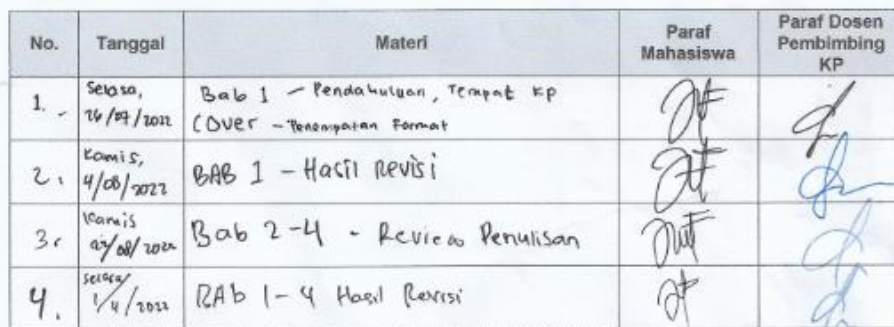 No. Tanggal Materi Paraf Mahasiswa Paraf Dosen Pembimbing KP
1. Selasa, Bab 1 - Pendahuluan, Tempat KP
26/07/2022 Cover - Penempatan Format
2. Kamis,
4/08/2022 BAB 1 - Hasil Revisi
3. Kamis
/08/2022 Bab 2-4 - Review Penulisan
4. Selasa/
1/4/2022 BAb 1-4 Hasil Revisi